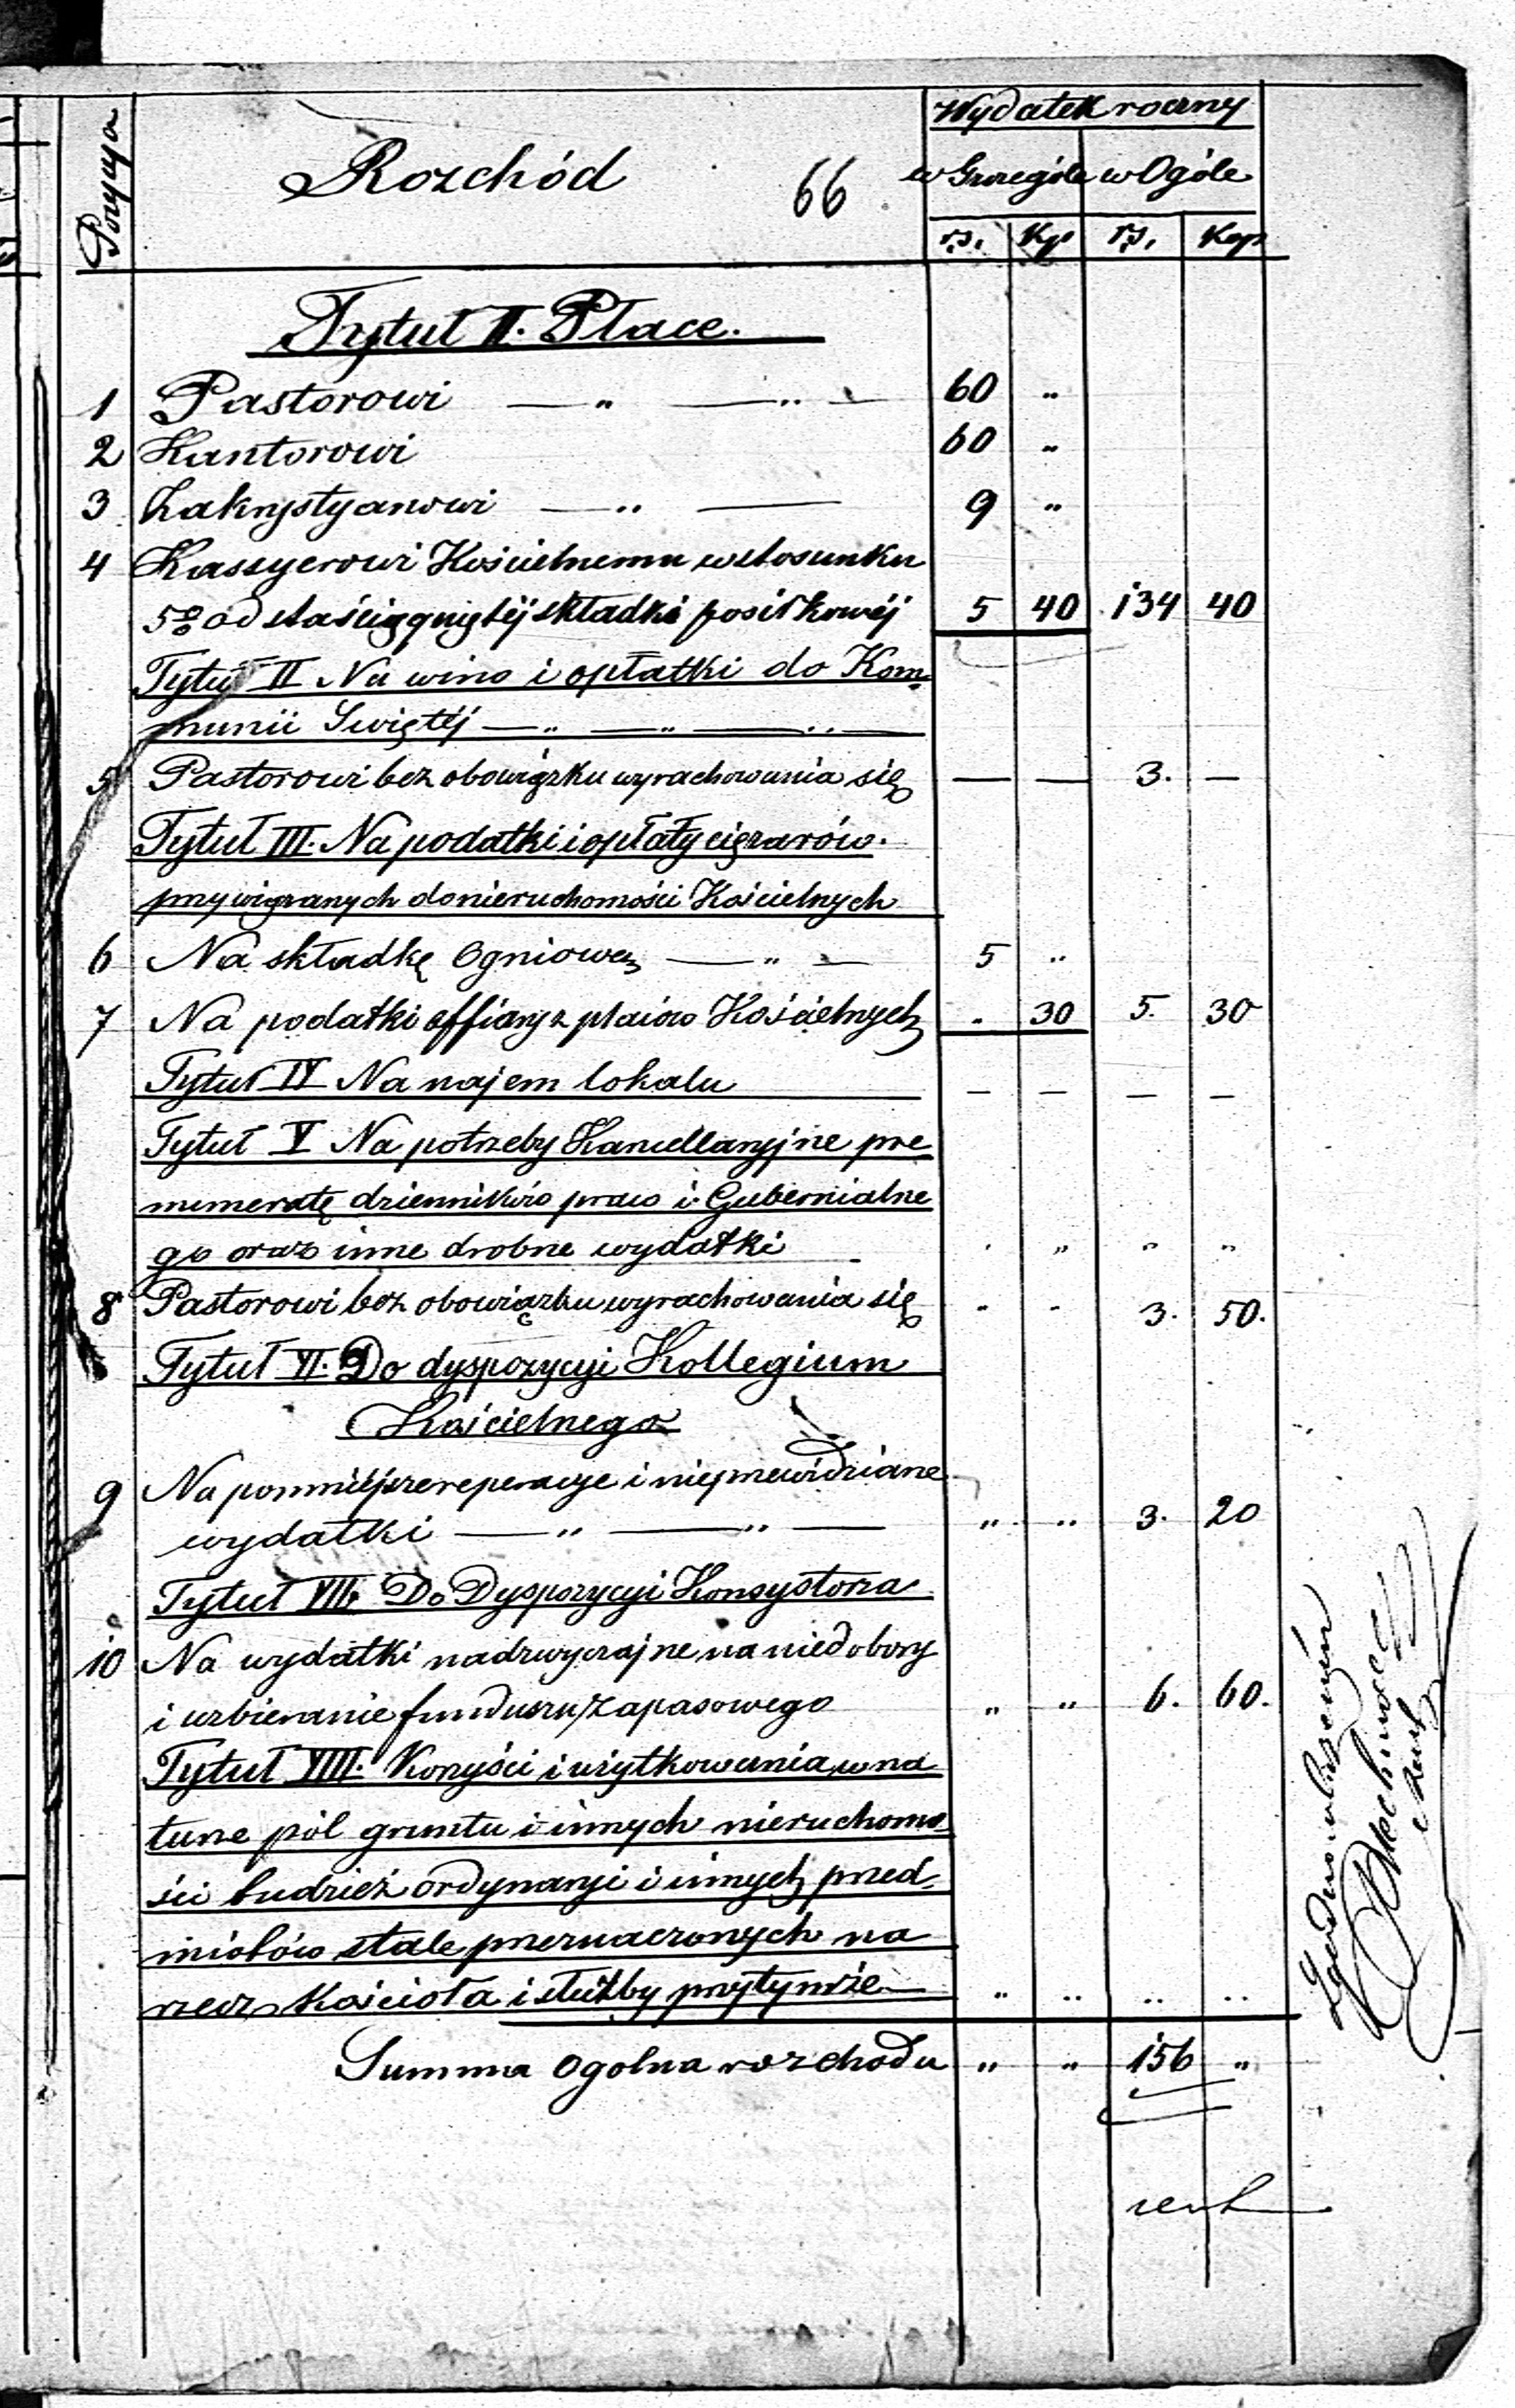 Pozycya
Rozchód 66
Wydatek roczny
w Szczególe w Ogóle
rs. Kp rs. Kop
Tytuł II. Płace.
1 Pastorowi — " — " — 60 "
2 Kantorowi 60 "
3 Zakrystyanowi — " — 9 "
4 Kassyerowi Kościelnemu w stosunku
5% od składki posiłkowéj 5 40 134 40
Tytuł II Na wino i opłatki do Kom-
munii Swiętéj — " — " — " —
5 Pastorowi bez obowiązku wyrachowania się — — 3. —
Tytuł III. Na podatki i opłaty ciężarów
przywiązanych do nieruchomości Kościelnych
6 Na składkę Ogniową — " — 5 "
7 Na podatki offiary z placów Kościelnych . 30 5. 30
Tytuł IV Na najem lokalu — — — —
Tytuł V Na potrzeby Kancellaryjne pre
numeratę dzienników praw i Gubernialne
go oraz inne drobne wydatki . " " "
8 Pastorowi bez obowiązku wyrachowania się " " 3. 50.
Tytuł VI. Do dyspozycyi Kollegium
Kościelnego
9 Na pomniejsze reperacye i nieprzewidziane
wydatki — " — " — " " 3. 20
Tytuł VII. Do Dyspozycyi Konsystorza
10 Na wydatki nadzwyczajne na niedobory
i uzbieranie funduszu zapasowego " " 6. 60.
Tytuł VIII. Korzyści i użytkowania w na
turze pól gruntu i innych nieruchomo
ści tudzież ordynaryi i innych przed-
miotów stale przeznaczonych na
rzecz Kościoła i służby przy tymże — " " " "
Summa Ogolna rozchodu " " 156 "